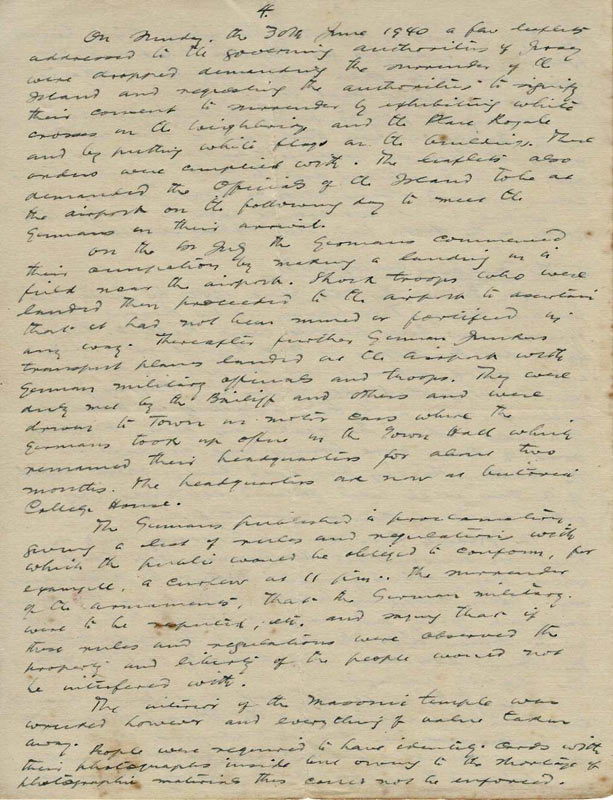 4.
On Sunday, the 30th June 1940 a few leaflets
addressed to the governing authorities of Jersey
were dropped demanding the surrender of the
Island and requesting the authorities to signify
their consent to surrender by exhibiting white
crosses on the Weighbridge and the Place Royale
and by putting white flags on the buildings. These
orders were complied with. The leaflets also
demanded the Officials of the Island to be at
the airport on the following day to meet the
Germans on their arrival.
On the 1st July the Germans commenced
their occupation by making a landing in a
field near the airport. Shock troops who were
landed then proceeded to the airport to ascertain
that it had not been mined or fortified in
any way. Thereafter further German Junkers
transport planes landed at the Airport with
German military officials and troops. They were
duly met by the Bailiff and others and were
driven to Town in motor cars where the
Germans took up office in the Town Hall which
remained their headquarters for about two
months. The headquarters are now at Victoria
College House.
The Germans published a proclamation
giving a list of rules and regulations with
which the public would be obliged to conform, for
example, a curfew at 11 p.m., the surrender
of the armaments, that the German military
were to be respected, etc. and saying that if
these rules and regulations were observed the
property and liberty of the people would not
be interfered with.
The interior of the Masonic temple was
wrecked however and everything of value taken
away.
People were required to have identity cards with
their photographs inside but owing to the shortage of
photographic materials this could not be enforced.